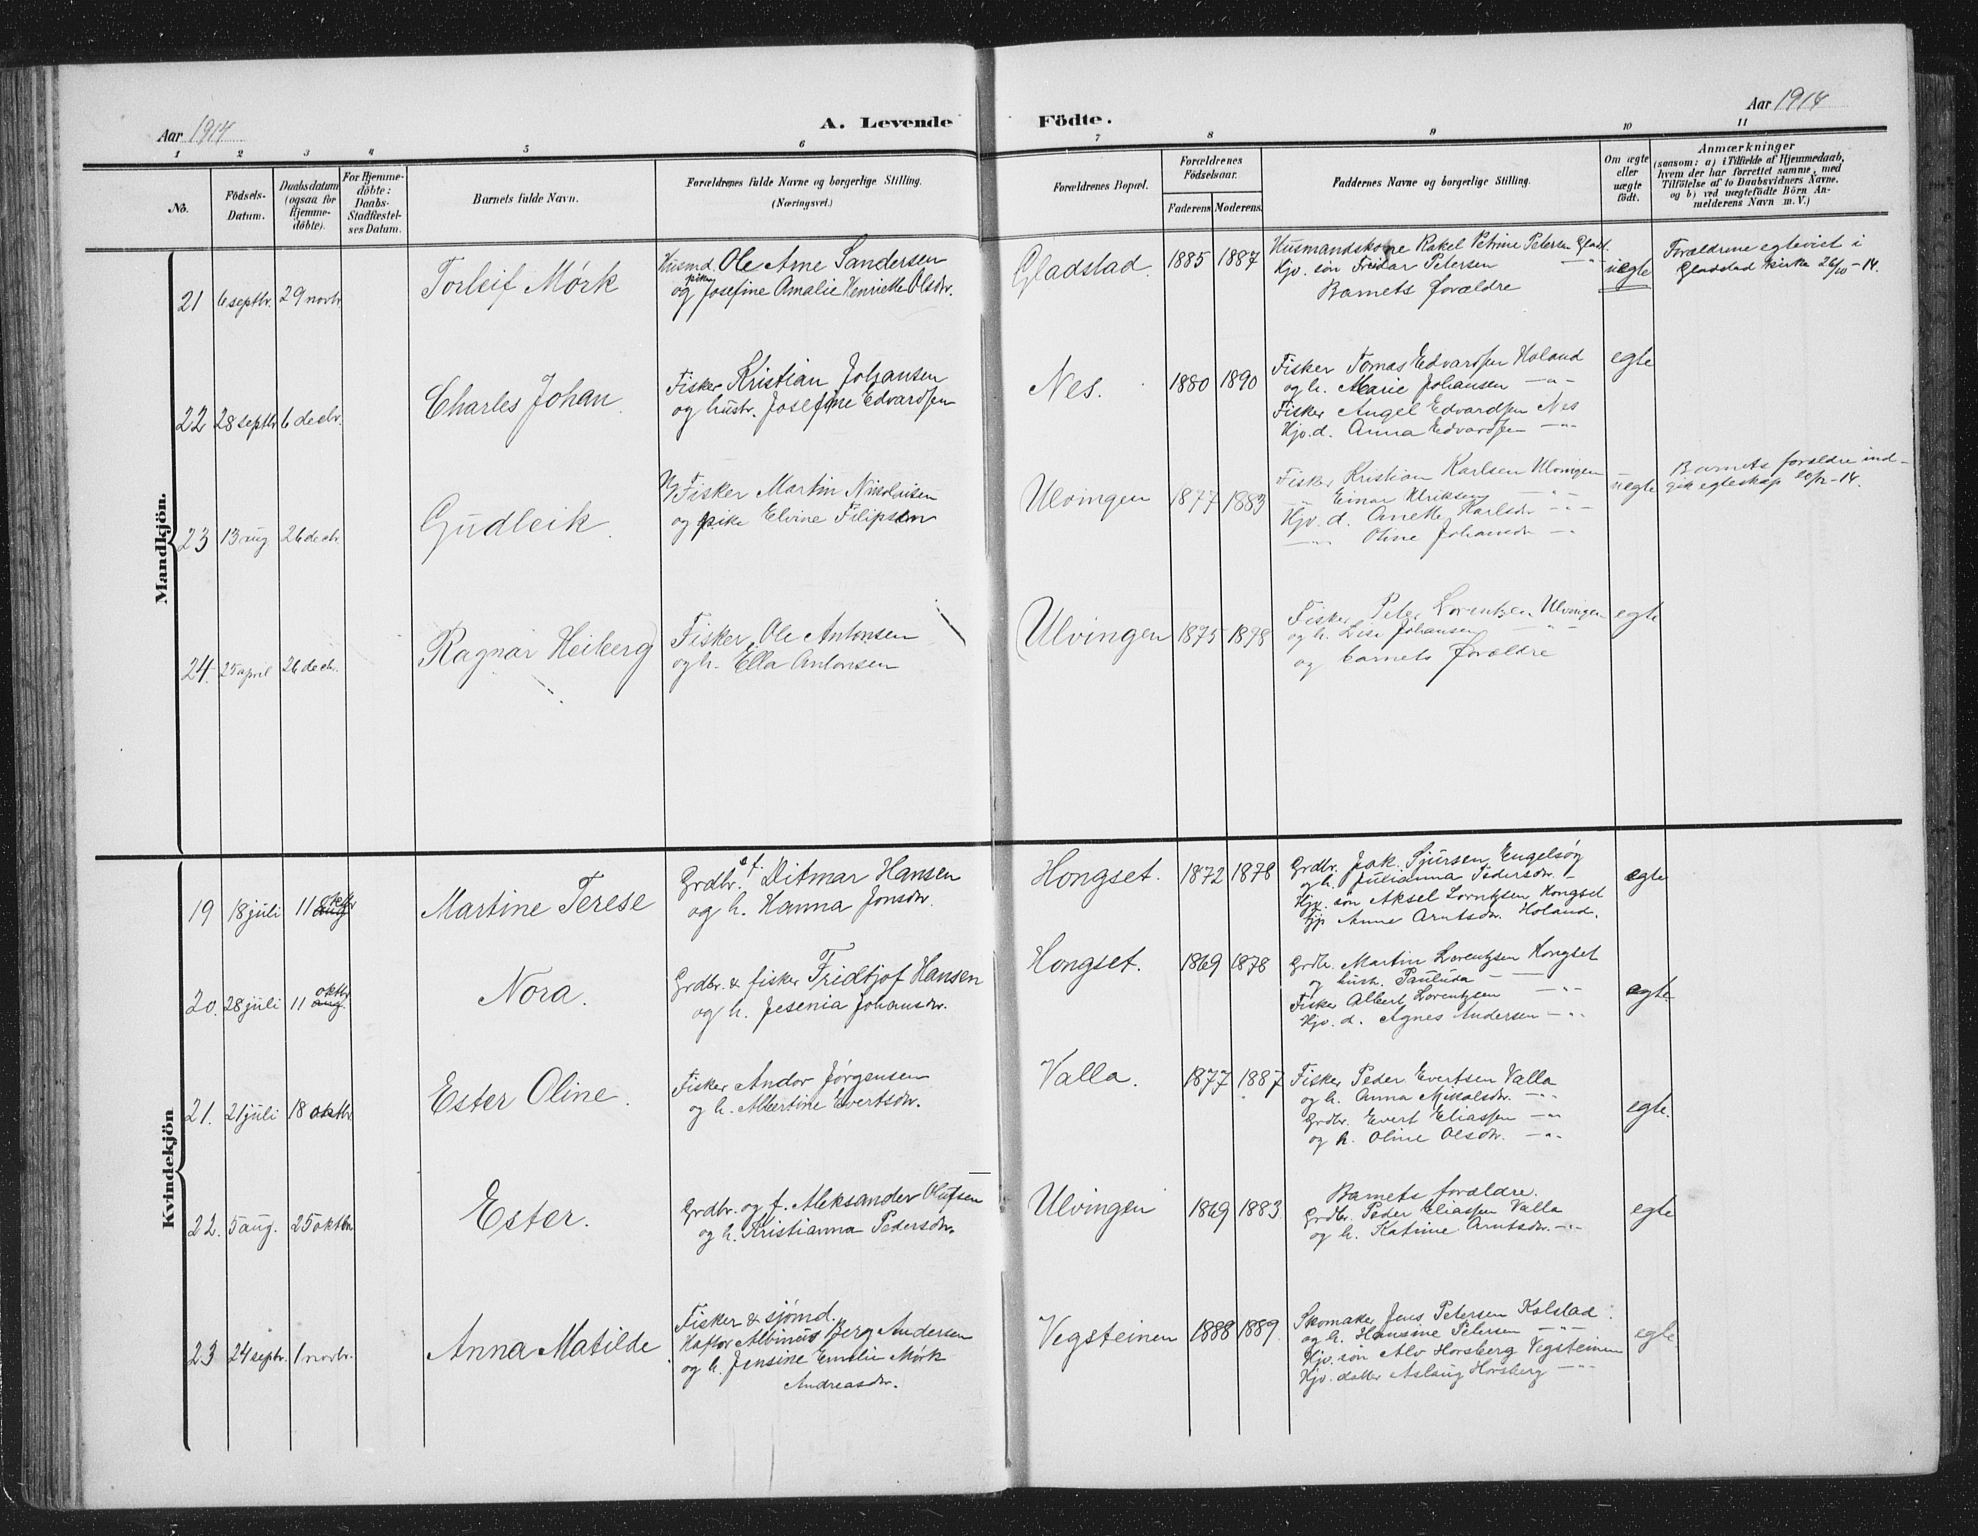 Aar 1914
A. Levende Födte.
Aar 1914
1 2 3 4 5 6 7 8 9 10 11
No.
Födsels-Datum.
Daabsdatum (ogsaa for Hjemme-döbte).
For Hjemme-döbte: Daabs-Stadfæstel-ses Datum.
Barnets fulde Navn.
Forældrenes fulde Navne og borgerlige Stilling.
(Næringsvei.)
Forældrenes Bopæl.
Forældrenes Födselsaar.
Faderens. Moderens.
Faddernes Navne og borgerlige Stilling.
Om ægte eller uægte födt.
Anmærkninger
(saasom: a) i Tilfælde af Hjemmedaab,
hvem der har forrettet samme, med
Tilföielse af to Daabsvidners Navne.
og b) ved uægtefödte Börn An-
melderens Navn m. V.)
Mandkjön.
21 6 septbr. 29 novbr. Torleif Mörk
Husmd. Ole Arne Sandersen
og pike Josefine Amalie Henriette Olsdtr.
Gladstad. 1885 1887
Husmandskone Rakel Petrine Petersen Gladst.
Hjv. sön Fridar Petersen — " —
Barnets forældre
uegte
Forældrene egteviet i
Gladstad kirke 26/10-14.
22 28 septbr. 6 decbr. Charles Johan
Fisker Kristian Johansen
og hustr. Josefine Edvardsen
Nes. 1880 1890
Fisker Tomas Edvardsen Holand
og h. Marie Johansen — " —
Fisker Angel Edvardsen Nes
Hjv. d. Anna Edvardsen — " —
egte
23 13 aug 26 decbr. Gudleik.
Fisker Martin Nikolaisen
og pike Elvine Filipsen
Ulvingen 1877 1883
Fisker Kristian Karlsen Ulvingen
— " — Einar Ulriksen — " —
Hjv. d. Anette Karlsdtr — " —
— " — Oline Johansdtr — " —
uegte
Barnets forældre ind-
gik egteskap
24. 25 april 26 decbr. Ragnar Heiberg
Fisker Ole Antonsen
og h. Ella Antonsen
Ulvingen 1875 1898
Fisker Peter Lorentzen Ulvingen
og h. Lise Johansen — " —
og barnets forældre
egte
Kvindekjön
19 18 juli 11 aug oktbr Martine Terese
Grdbr. & f. Ditmar Hansen
og h. Hanna Jonsdtr.
Hongset. 1872 1878
Grdbr. Jak. Sjursen Engelsöy
og h. Julianna Pedersdtr. —
Hjv. sön Aksel Lorntzen Hongset
tjp Anne Arntsdtr. Holand.
egte
20. 28 juli 11 aug. oktbr Nora.
Grdbr. & fisker Fridtjof Hansen
og h. Jesenia Johansdtr.
Hongset. 1869 1878
Grdbr. Martin Lorentzen Hongset
og hustr. Paulida — " —
Fisker Albert Lorentzen — " —
Hjv. d. Agnes Andersen — " —
egte
21. 21 juli 18 oktbr Ester Oline.
Fisker Andor Jörgensen
og h. Albertine Evertsdtr.
Valla. 1877 1887
Fisker Peder Evertsen Valla
og h. Anna Mikalsdtr. — " —
Grdbr. Evert Eliassen — " —
og h. Oline Olsdtr. — " —
egte.
22. 5 aug. 25 oktbr Ester.
Grdbr. og f. Aleksander Olufsen
og h. Kristianna Pedersdtr.
Ulvingen 1869 1883.
Barnets forældre.
Grdbr. Peder Eliassen Valla
og h. Katrine Arntsdtr. — " —
egte
23 24 septbr. 1 novbr. Anna Matilde
Fisker & sjömd.
Haftor Albinus Berg Andersen
og h. Jensine Emelie Mörk
Andreasdtr.
Vegsteinen 1888 1889.
Skomaker Jens Petersen Kolstad
og h. Hansine Petersen — " —
Hjv. sön Alv Horsberg Vegsteinen
Hjv. datter Aslaug Horsberg — " —
egte